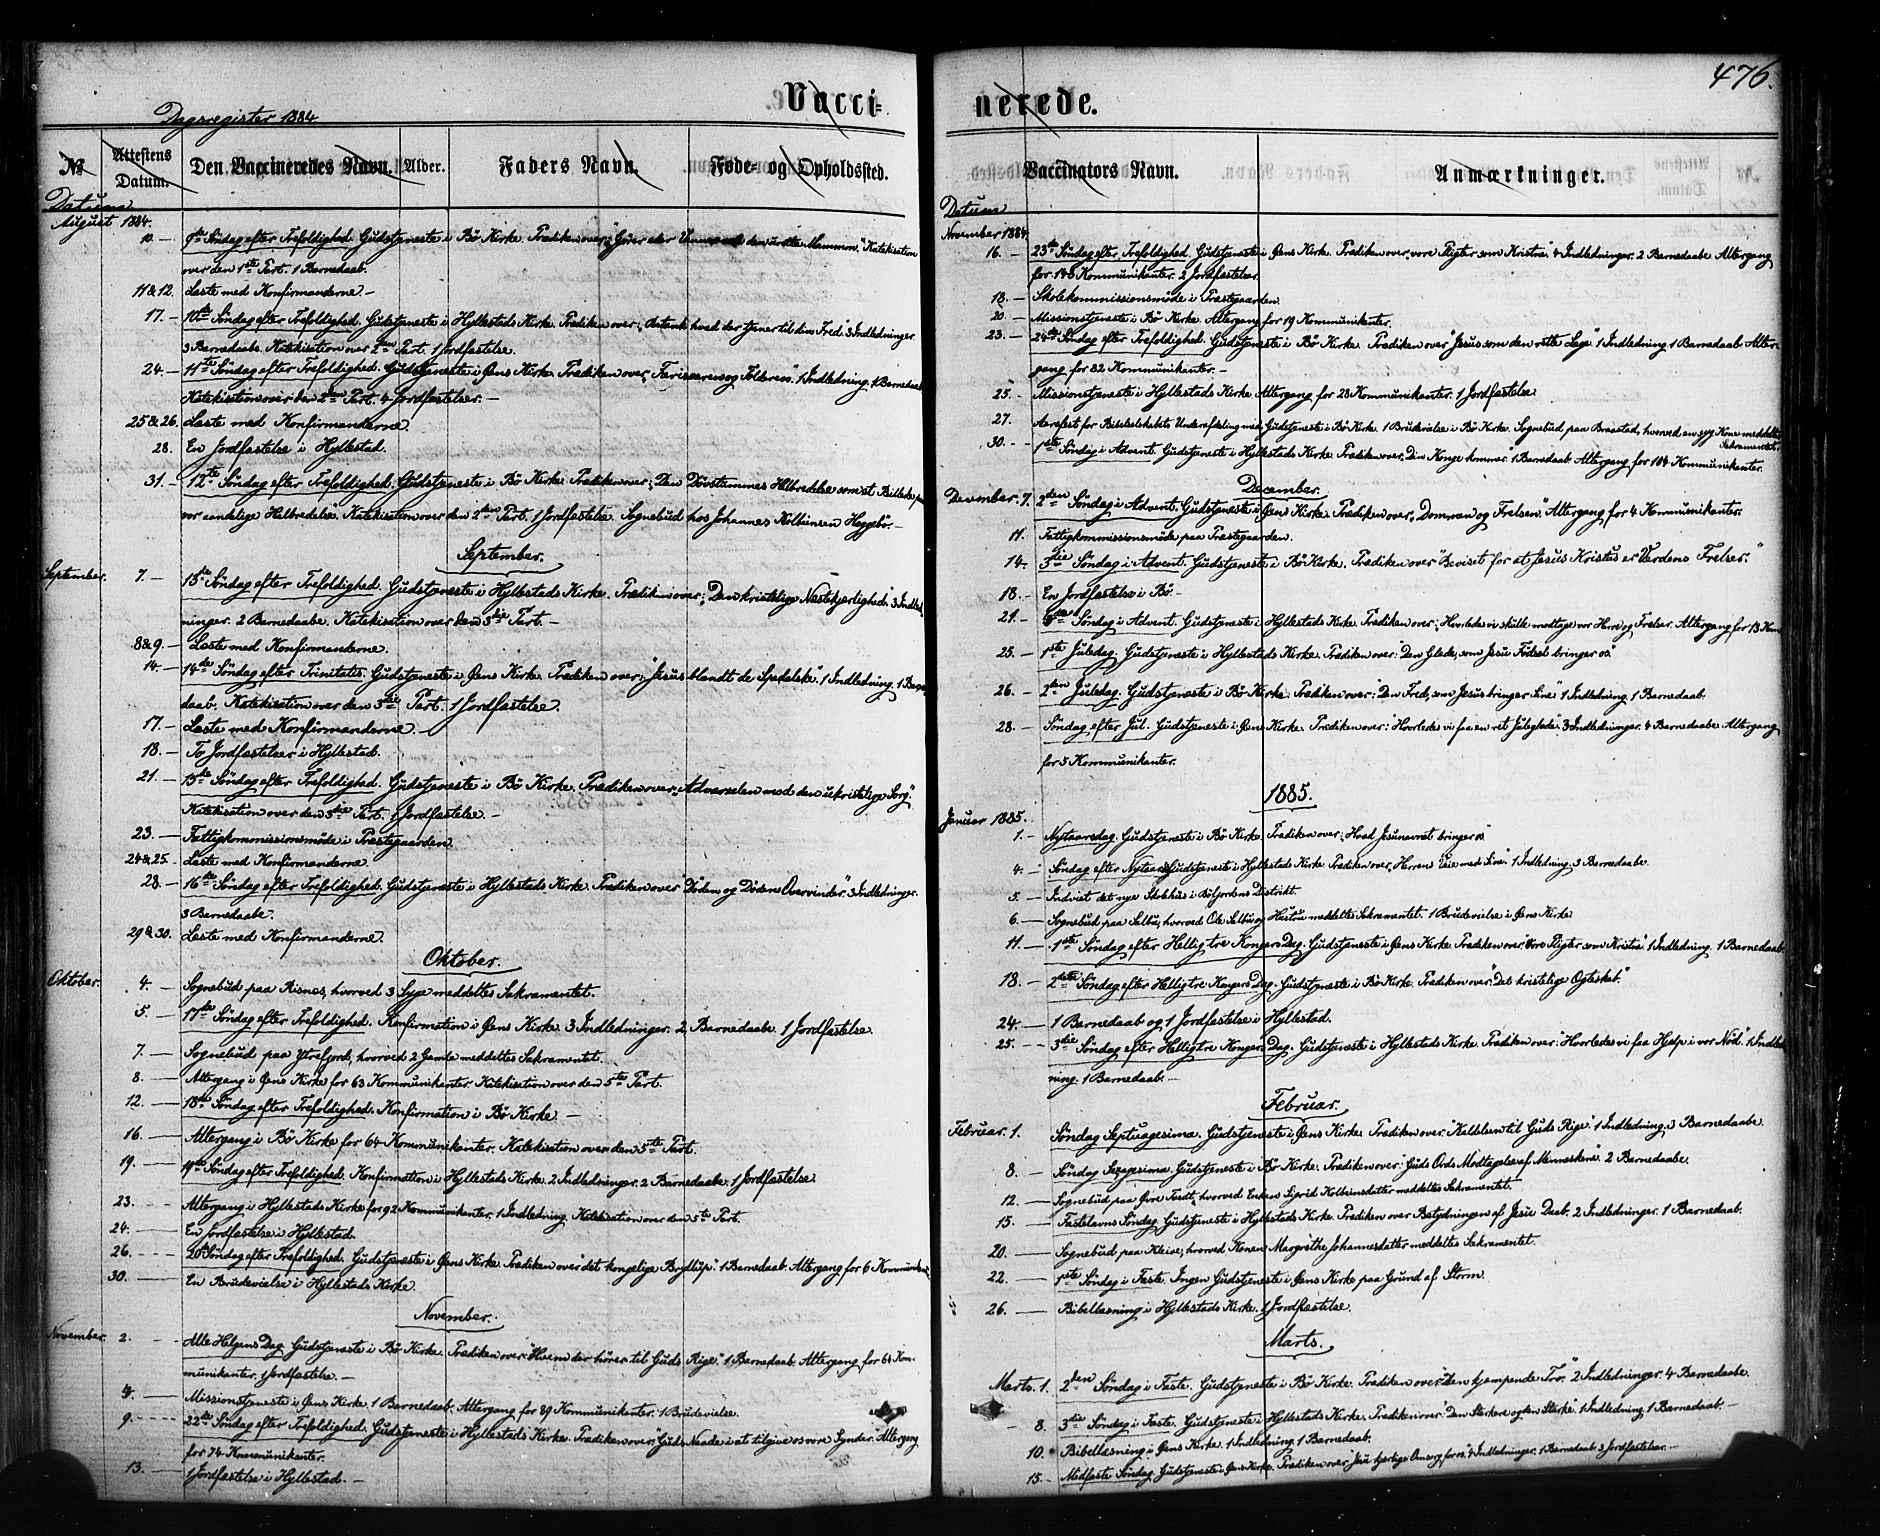 476.
Dagsregister 1884.
Vacci-
nerede.
№
Attestens Datum.
Den Vaccineredes Navn.
Alder.
Faders Navn.
Føde- og Opholdssted.
Datum
August 1884.
10. — 9de Søndag efter Trefoldighed. Gudstjeneste i Bø Kirke. Prædiken over: "Gjører eder Venner den urette Mammon." Katekisation
over den 1ste Part. 1 Barnedaab.
11 & 12. Læste med Konfirmanderne. —
17. — 10de Søndag efter Trefoldighed. Gudstjeneste i Hyllestads Kirke. Prædiken over: "Betænk hvad der tjener til din Fred." 3 Indledninger.
3 Barnedaabe. Katekisation over 2den Part. 1 Jordfæstelse.
24. — 11te Søndag efter Trefoldighed. Gudstjeneste i Øens Kirke. Prædiken over: "Farisæeren og Tolderen". 1 Indledning. 1 Barnedaab
Katekisation over den 2den Part. 4 Jordfæstelser. —
25 & 26. Læste med Konfirmanderne.
28. En Jordfæstelse i Hyllestad.
31. — 12te Søndag efter Trefoldighed. Gudstjeneste i Bø Kirke. Prædiken over: "Den Døvstummes Helbredelse som et Billede paa
vor aandelige Helbredelse". Katekisation over den 2den Part. 1 Jordfæstelse. Sognebud hos Johannes Kolbeinsen Heggebø. —
September.
September. 7. — 13de Søndag efter Trefoldighed. Gudstjeneste i Hyllestads Kirke. Prædiken over: "Den kristelige Næstekjærlighed. 3 Indled-
ninger. 2 Barnedaabe. Katekisation over den 3die Part. —
8 & 9. — Læste med Konfirmanderne.
14. — 14de Søndag efter Trinitatis. Gudstjeneste i Øens Kirke. Prædiken over: "Jesus blandt de Spedalske". 1 Indledning. 1 Barne-
daab. Katekisation over den 3die Part. 1 Jordfæstelse.
17. — Læste med Konfirmanderne. —
18. — To Jordfæstelser i Hyllestad.
21. — 15de Søndag efter Trefoldighed. Gudstjeneste i Bø Kirke. Prædiken over: "Advarselen mod den ukristelige Sorg".
Katekisation over den 3die Part. 1 Jordfæstelse. —
23. — Fattigkommissionsmøde i Præstegaarden.
24 & 25. — Læste med Konfirmanderne.
28. — 16de Søndag efter Trefoldighed. Gudstjeneste i Hyllestads Kirke. Prædiken over "Døden og Dødens Overvinder". 3 Indledninger.
3 Barnedaabe.
29 & 30. Læste med Konfirmanderne.
Oktober.
Oktober. 4. — Sognebud paa Risnes, hvorved 3 Syge meddeltes Sakramentet.
5. — 17de Søndag efter Trefoldighed. Konfirmation i Øens Kirke. 3 Indledninger. 2 Barnedaabe. 1 Jordfæstelse.
7. — Sognebud paa Ytrefjord, hvorved 2 Gamle meddeltes Sakramentet.
8. — Altergang i Øens Kirke for 63 Kommunikanter. Katekisation over den 5te Part.
12. — 18de Søndag efter Trefoldighed. Konfirmation i Bø Kirke. —
16. — Altergang i Bø Kirke for 64 Kommunikanter. Katekisation over den 5te Part.
19. — 19de Søndag efter Trefoldighed. Konfirmation i Hyllestads Kirke. 2 Indledninger. 2 Barnedaabe. 1 Jordfæstelse.
23. — Altergang i Hyllestads Kirke for 92 Kommunikanter. 1 Indledning. Katekisation over den 5te Part.
24. — En Jordfæstelse i Hyllestad.
26. — 20de Søndag efter Trefoldighed. Gudstjeneste i Øens Kirke. Prædiken over det kongelige Bryllup. 1 Barnedaab. Altergang for 6 Kommunikanter.
30. — En Brudevielse i Hyllestads Kirke.
November.
November. 2. — Alle Helgens Dag. Gudstjeneste i Bø Kirke. Prædiken over: "Hvem der hører til Guds Rige". 1 Barnedaab. Altergang for 64 Kom-
munikanter. 1 Jordfæstelse. —
4. — Missionstjeneste i Øens Kirke. 1 Barnedaab. Altergang for 39 Kommunikanter. 1 Brudevielse.
9. — 22de Søndag efter Trefoldighed. Gudstjeneste i Hyllestads Kirke. Prædiken over: "Guds Naade i at tilgive os vore Synder". Altergang
for 74 Kommunikanter.
13. — 1 Jordfæstelse i Hyllestad. —
Vaccinators Navn.
Anmærkninger.
Datum
November 1884.
16. — 23de Søndag efter Trefoldighed. Gudstjeneste i Øens Kirke. Prædiken over: vore Pligter som Kristne. 4 Indledninger. 2 Barnedaabe. Altergang
for 148 Kommunikanter. 2 Jordfæstelser.
18. — Skolekommissionsmøde i Præstegaarden.
20. — Missionstjeneste i Bø Kirke. Altergang for 19 Kommunikanter.
23. — 24de Søndag efter Trefoldighed. Gudstjeneste i Bø Kirke. Prædiken over "Jesus som den rette Læge". 1 Indledning. 1 Barnedaab. Alter-
gang for 82 Kommunikanter. —
25. — Missionstjeneste i Hyllestads Kirke. Altergang for 28 Kommunikanter. 1 Jordfæstelse.
27. Aarsfest for Bibelselskabets Underafdeling med Gudstjeneste i Bø Kirke. 1 Brudevielse i Bø Kirke. Sognebud paa Braastad, hvorved en syg Kone meddeltes
Sakramentet.
30. — 1ste Søndag i Advent. Gudstjeneste i Hyllestads Kirke. Prædiken over: "Din Konge kommer". 1 Barnedaab. Altergang for 104 Kommunikanter.
December.
December. 7. 2den Søndag i Advent. Gudstjeneste i Øens Kirke. Prædiken over: "Dommen og Frelsen". Altergang for 4 Kommunikanter.
11. Fattigkommissionsmøde paa Præstegaarden.
14. — 3die Søndag i Advent. Gudstjeneste i Bø Kirke. Prædiken over "Beviset for at Jesus Kristus er Verdens Frelser."
18. — En Jordfæstelse i Bø. —
21. — 4de Søndag i Advent. Gudstjeneste i Hyllestads Kirke. Prædiken over: "Hvorledes vi skulle modtage vor Herre og Frelser. Altergang for 13 Kom
25. — 1ste Juledag. Gudstjeneste i Hyllestads Kirke. Prædiken over: "Den Glæde, som Jesu Fødsel bringer os".
26. — 2den Juledag. Gudstjeneste i Bø Kirke. Prædiken over: "Den Fred, som Jesus bringer Sine" 1 Indledning. 1 Barnedaab.
28. — Søndag efter Jul. Gudstjeneste i Øens Kirke. Prædiken over: "Hvorledes vi faa en ret Juleglæde". 3 Indledninger. 4 Barnedaabe. Altergang
for 5 Kommunikanter.
1885.
Januar 1885.
1. — Nytaarsdag. Gudstjeneste i Bø Kirke. Prædiken over: "Hvad Jesunavnet bringer os"
4. — Søndag efter Nytaar. Gudstjeneste i Hyllestads Kirke. Prædiken over: "Herrens Veie med Sine". 1 Indledning. 3 Barnedaabe.
5. — Indviet det nye Skolehus i Bøfjordens Distrikt.
6. — Sognebud paa Salbu, hvorved Ole Salbu og Hustru meddeltes Sakramentet. 1 Brudevielse i Øens Kirke
11. — 1ste Søndag efter Hellig tre Kongers Dag. Gudstjeneste i Øens Kirke. Prædiken over: "Vore Pligter som Kristne". 1 Indledning. 1 Barnedaab.
18. — 2den Søndag efter Hellig tre Kongers Dag. Gudstjeneste i Bø Kirke. Prædiken over: "Det kristelige Ægteskab".
24. — 1 Barnedaab og 1 Jordfæstelse i Hyllestad.
25. — 3die Søndag efter Hellig tre Kongers Dag. Gudstjeneste i Hyllestads Kirke. Prædiken over: "Hvorledes vi faa Hjælp i vor Nød". 1 Indled-
ning. 1 Barnedaab. —
Februar.
Februar. 1. Søndag Septuagesima. Gudstjeneste i Øens Kirke. Prædiken over: "Kaldelsen til Guds Rige". 1 Indledning. 3 Barnedaabe.
8. — Søndag Sexagesima. Gudstjeneste i Bø Kirke. Prædiken over: "Guds Ords Modtagelse af Menneskene". 2 Barnedaabe.
12. — Sognebud paa Øvre Tredt, hvorved Enken Sigrid Kolbeinsdatter meddeltes Sakramentet.
15. — Fastelavns Søndag. Gudstjeneste i Hyllestads Kirke. Prædiken over Betydningen af Jesu Daab. 2 Indledninger. 1 Barnedaab.
20. — Sognebud paa Kleive, hvorved Konen Margrethe Johannesdatter meddeltes Sakramentet.
22. — 1ste Søndag i Faste. Ingen Gudstjeneste i Øens Kirke paa Grund af Storm.
26. — Bibellæsning i Hyllestads Kirke. 1 Jordfæstelse.
Marts.
Marts. 1. 2den Søndag i Faste. Gudstjeneste i Bø Kirke. Prædiken over: "Den kjæmpende Tro". 2 Indledninger. 4 Barnedaabe.
8. — 3die Søndag i Faste. Gudstjeneste i Hyllestads Kirke. Prædiken over: "Den Stærkere og den Stærke". 1 Indledning. 1 Barnedaab. —
10. — Bibellæsning i Øens Kirke. 1 Indledning. 1 Barnedaab.
15. — Midfaste Søndag. Gudstjeneste i Øens Kirke. Prædiken over: "Jesu kjærlige Omsorg for os". 4 Indledninger. 1 Barnedaab. 3 Jordfæstelser. —